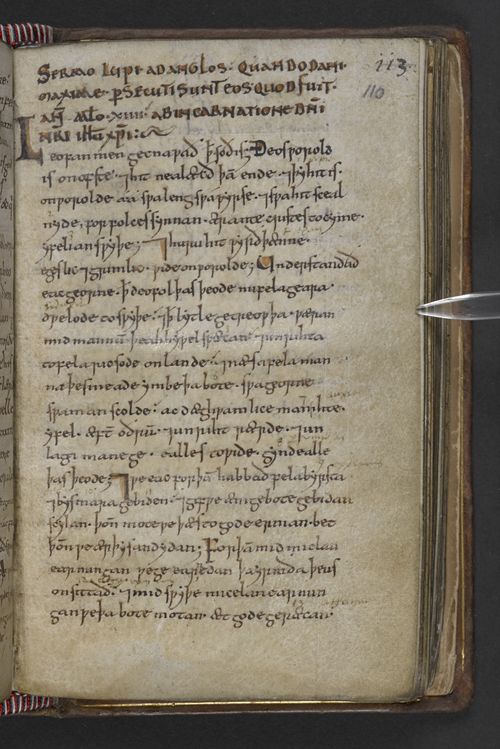 113
110
SERMO LUPI AD ANGLOS. QUANDO DANI
MAXIME P̄SECUTI SUNT EOS QUOD FUIT·
AN̄ MILL̄O·XIIII· AB INCARNATIONE DN̄I
N̄RI IHŪ XPĪ:
Leofan men gecnapað ꝥ soð is; Ðeos ƿorold
is on ofste· ⁊ hit nealæcð þā ende· ⁊ þy hit is·
on ƿorolde aa sƿa leng sƿa ƿyrse· ⁊ sƿa hit sceal
nyde, for folces synnan· ær antecristes tocyme·
yfelian sƿyþe; ⁊ huru hit ƿyrð þænne·
egeslic ⁊ grimlic· ƿide on ƿorolde; Understandað
eac georne· ꝥ deofol þas þeode nu fela geara·
dƿelode to sƿyþe· ⁊ ꝥ lytle getreoƿþa· ƿæran
mid mannū þeah hy ƿel spæcan· ⁊ unrihta
to fela ricsode on lande· ⁊ næs a fela man
na þe smeade ymbe þa bote· sƿa georne
sƿa man scolde· ac dæghƿamlice man ihte·
yfel· æft̄ oðrū· ⁊ unriht rærde· ⁊ un
laga manege· ealles to ƿide· gynd ealle
þas þeode; ⁊ ƿe eac forþā habbað fela byrsta
⁊ bysmara gebiden· ⁊ gif ƿe ænige bote gebidan
scylan· þon̄ mote ƿe þæs to gode ernian bet
þon̄ ƿe ær þysan dydan; Forþā mid miclan
earnungan ƿe geearnedan þa yrmða þe us
onsittað· ⁊ mid sƿyþe micelan earnun
gan ƿe þa bote motan· æt gode geræcan·